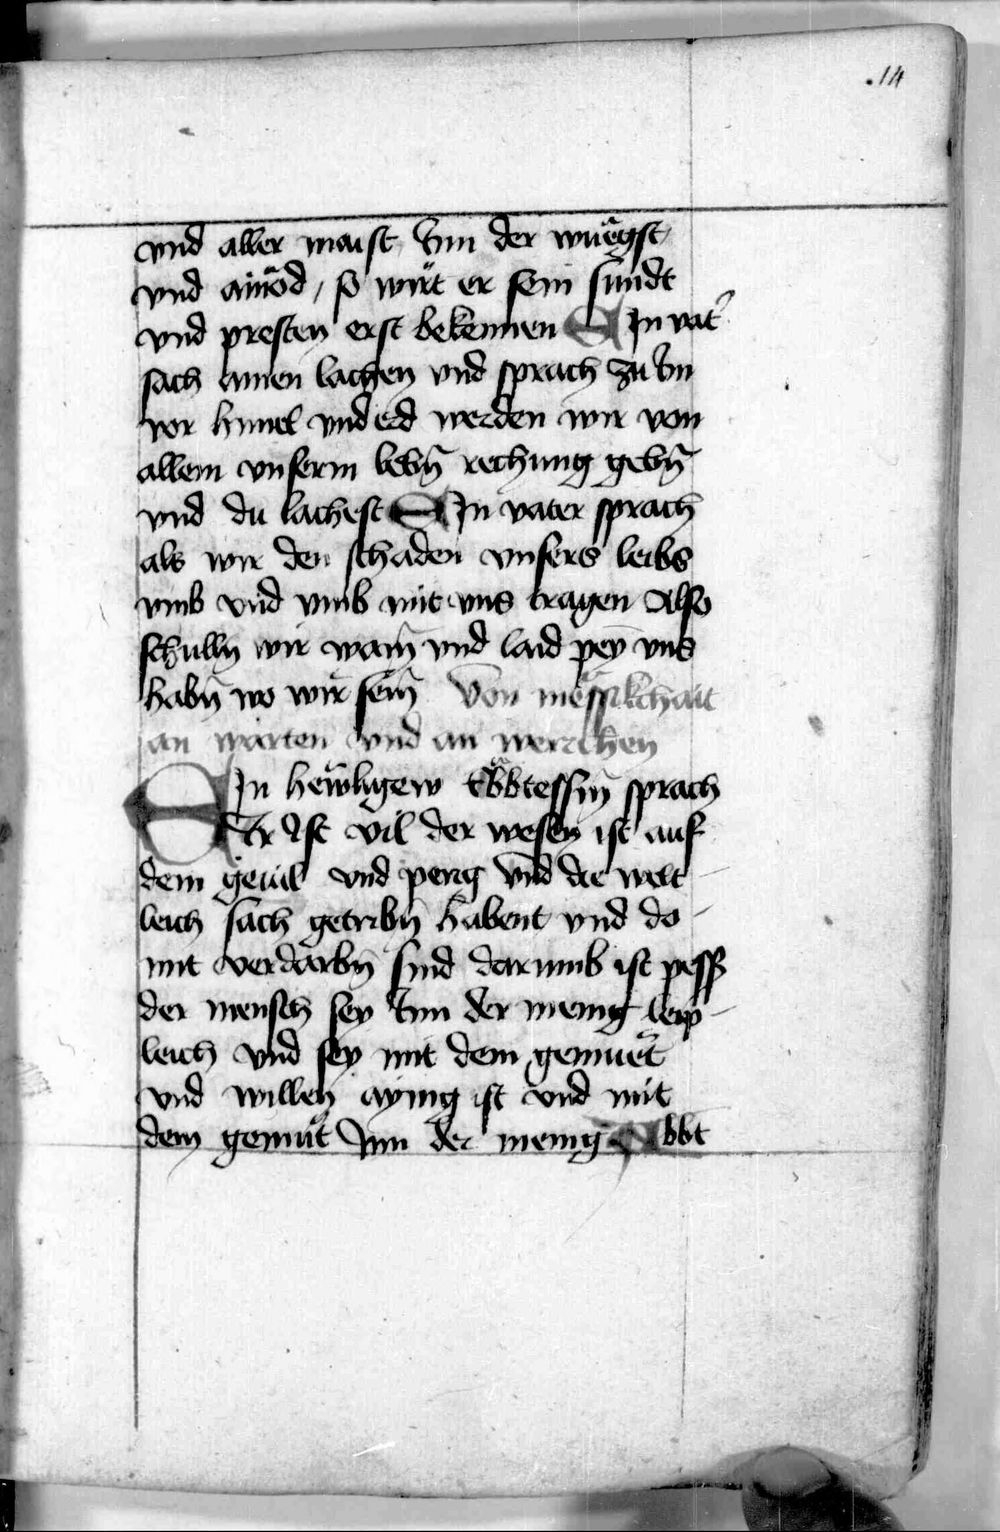 14
vnd aller maist Inn der wuͤgst
vnd ainöd / so wirt er sein sundt
vnd presten erst bekennen Ein vat'
sach ainen lachen vnd sprach zu Im
vor himel vnd erd werden wir von
allem vnserm lebn̄ rechnung gebn̄
vnd du lachest Ein vater sprach
als wir den schaden vnsers leibs
vmb vnd vmb mit vns tragen Also
schulln̄ wir wain̄ vnd laid pey vns
habn̄ wo wir sein̄ Von mëssikchait
an warten vnd an werchen
Ein hewligew äbbtessin̄ sprach
Er Ist vil der wesen ist auf
dem gewil vnd perig vnd die welt
leich sach getribn̄ habent vnd do
mit verdarbn̄ sind darumb ist pess
der mensch sey Inn der menig leip
leich vnd sey mit dem gemuet
vnd willen aynig ist vnd mit
dem gemut Inn der menig Abbt